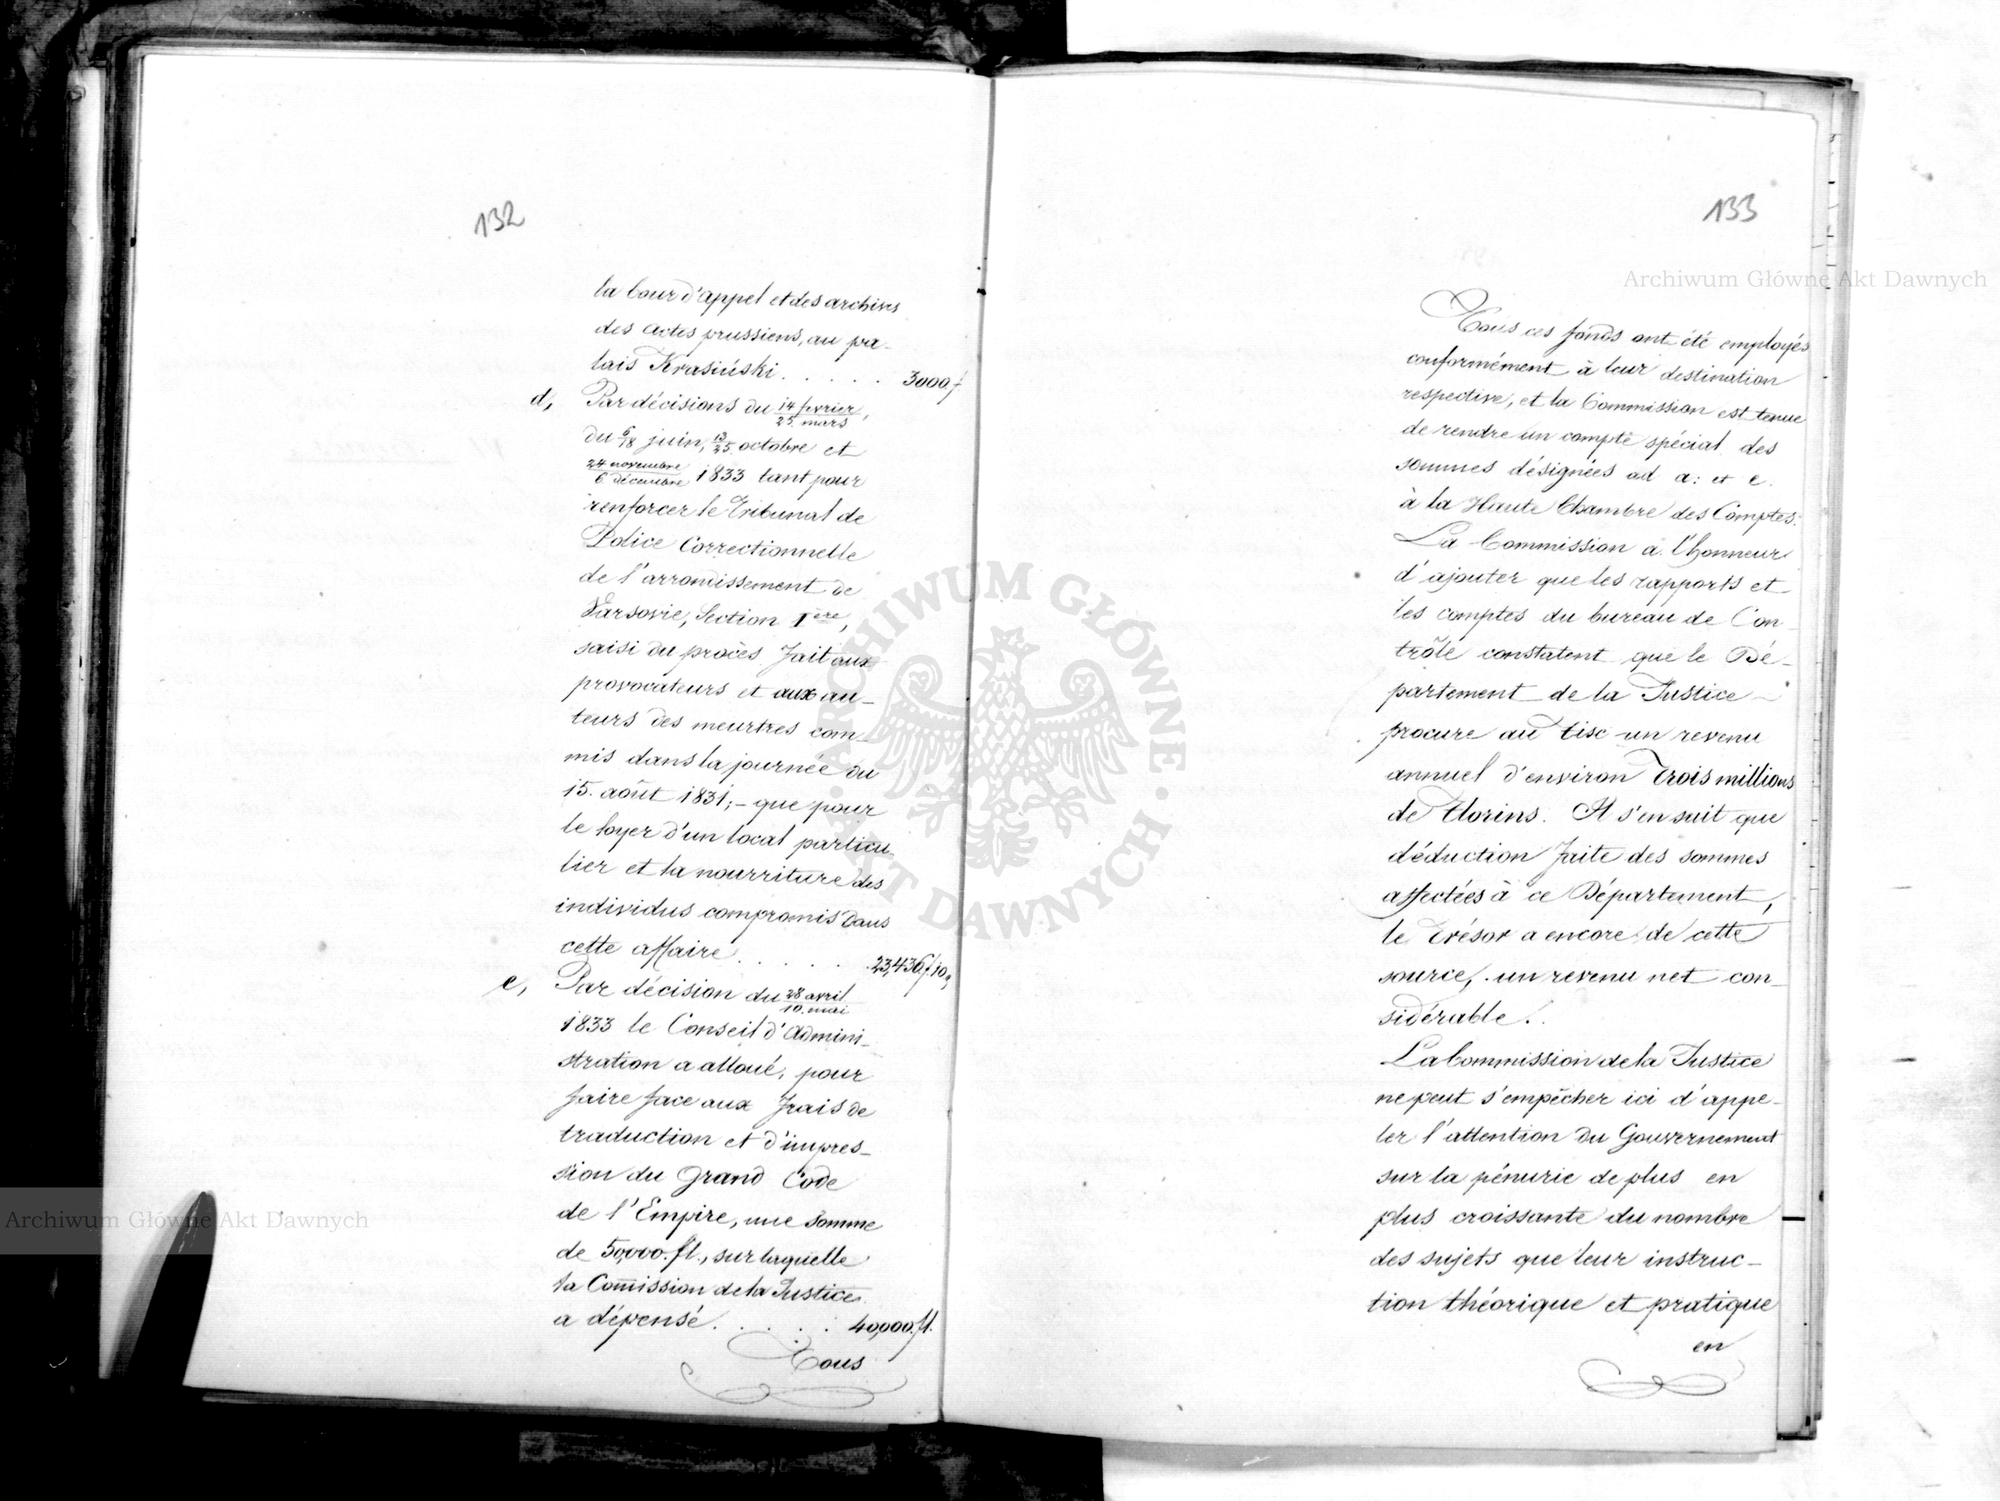 132
la Cour d'appel et des archives
des Actes prussiens, au pa-
lais Krasiński . . . . . 3000 f
d, Par décisions du 14 fevrier/25 mars,
du 6/18 juin, 13/25 octobre et
24 novembre/6 décembre 1833 tant pour
renforcer le Tribunal de
Police Correctionnelle
de l'arrondissement de
Varsovie, Section Ière,
saisi du procès fait aux
provocateurs et aux au-
teurs des meurtres com-
mis dans la journée du
15. août 1831; - que pour
le loyer d'un local particu-
lier et la nourriture des
individus compromis dans
cette affaire . . . . . 23,436 f 10 g
e, Par décision du 28 avril/10. mai
1833 le Conseil d'Admini-
stration a alloué, pour
faire face aux frais de
traduction et d'impres-
sion du Grand Code
de l'Empire, une somme
de 50,000. fl., sur laquelle
la Com̄ission de la Justice
a dépensé . . . . . 40,000. fl.
Tous
133
Tous ces fonds ont été employés
conformément à leur destination
respective, et la Commission est tenue
de rendre un compte spécial des
sommes désignées ad a: et e.
à la Haute Chambre des Comptes.
La Commission a l'honneur
d'ajouter que les rapports et
les comptes du bureau de Con-
trôle constatent que le Dé-
partement de la Justice
procure au fisc un revenu
annuel d'environ trois millions
de florins. Il s'en suit que
déduction faite des sommes
affectées à ce Département,
le Trésor a encore de cette
source, un revenu net con-
sidérable.
La Commission de la Justice
ne peut s'empêcher ici d'appe-
ler l'attention du Gouvernement
sur la pénurie de plus en
plus croissante du nombre
des sujets que leur instruc-
tion théorique et pratique
en
Archiwum Główne Akt Dawnych
Archiwum Główne Akt Dawnych
ARCHIWUM GŁÓWNE AKT DAWNYCH